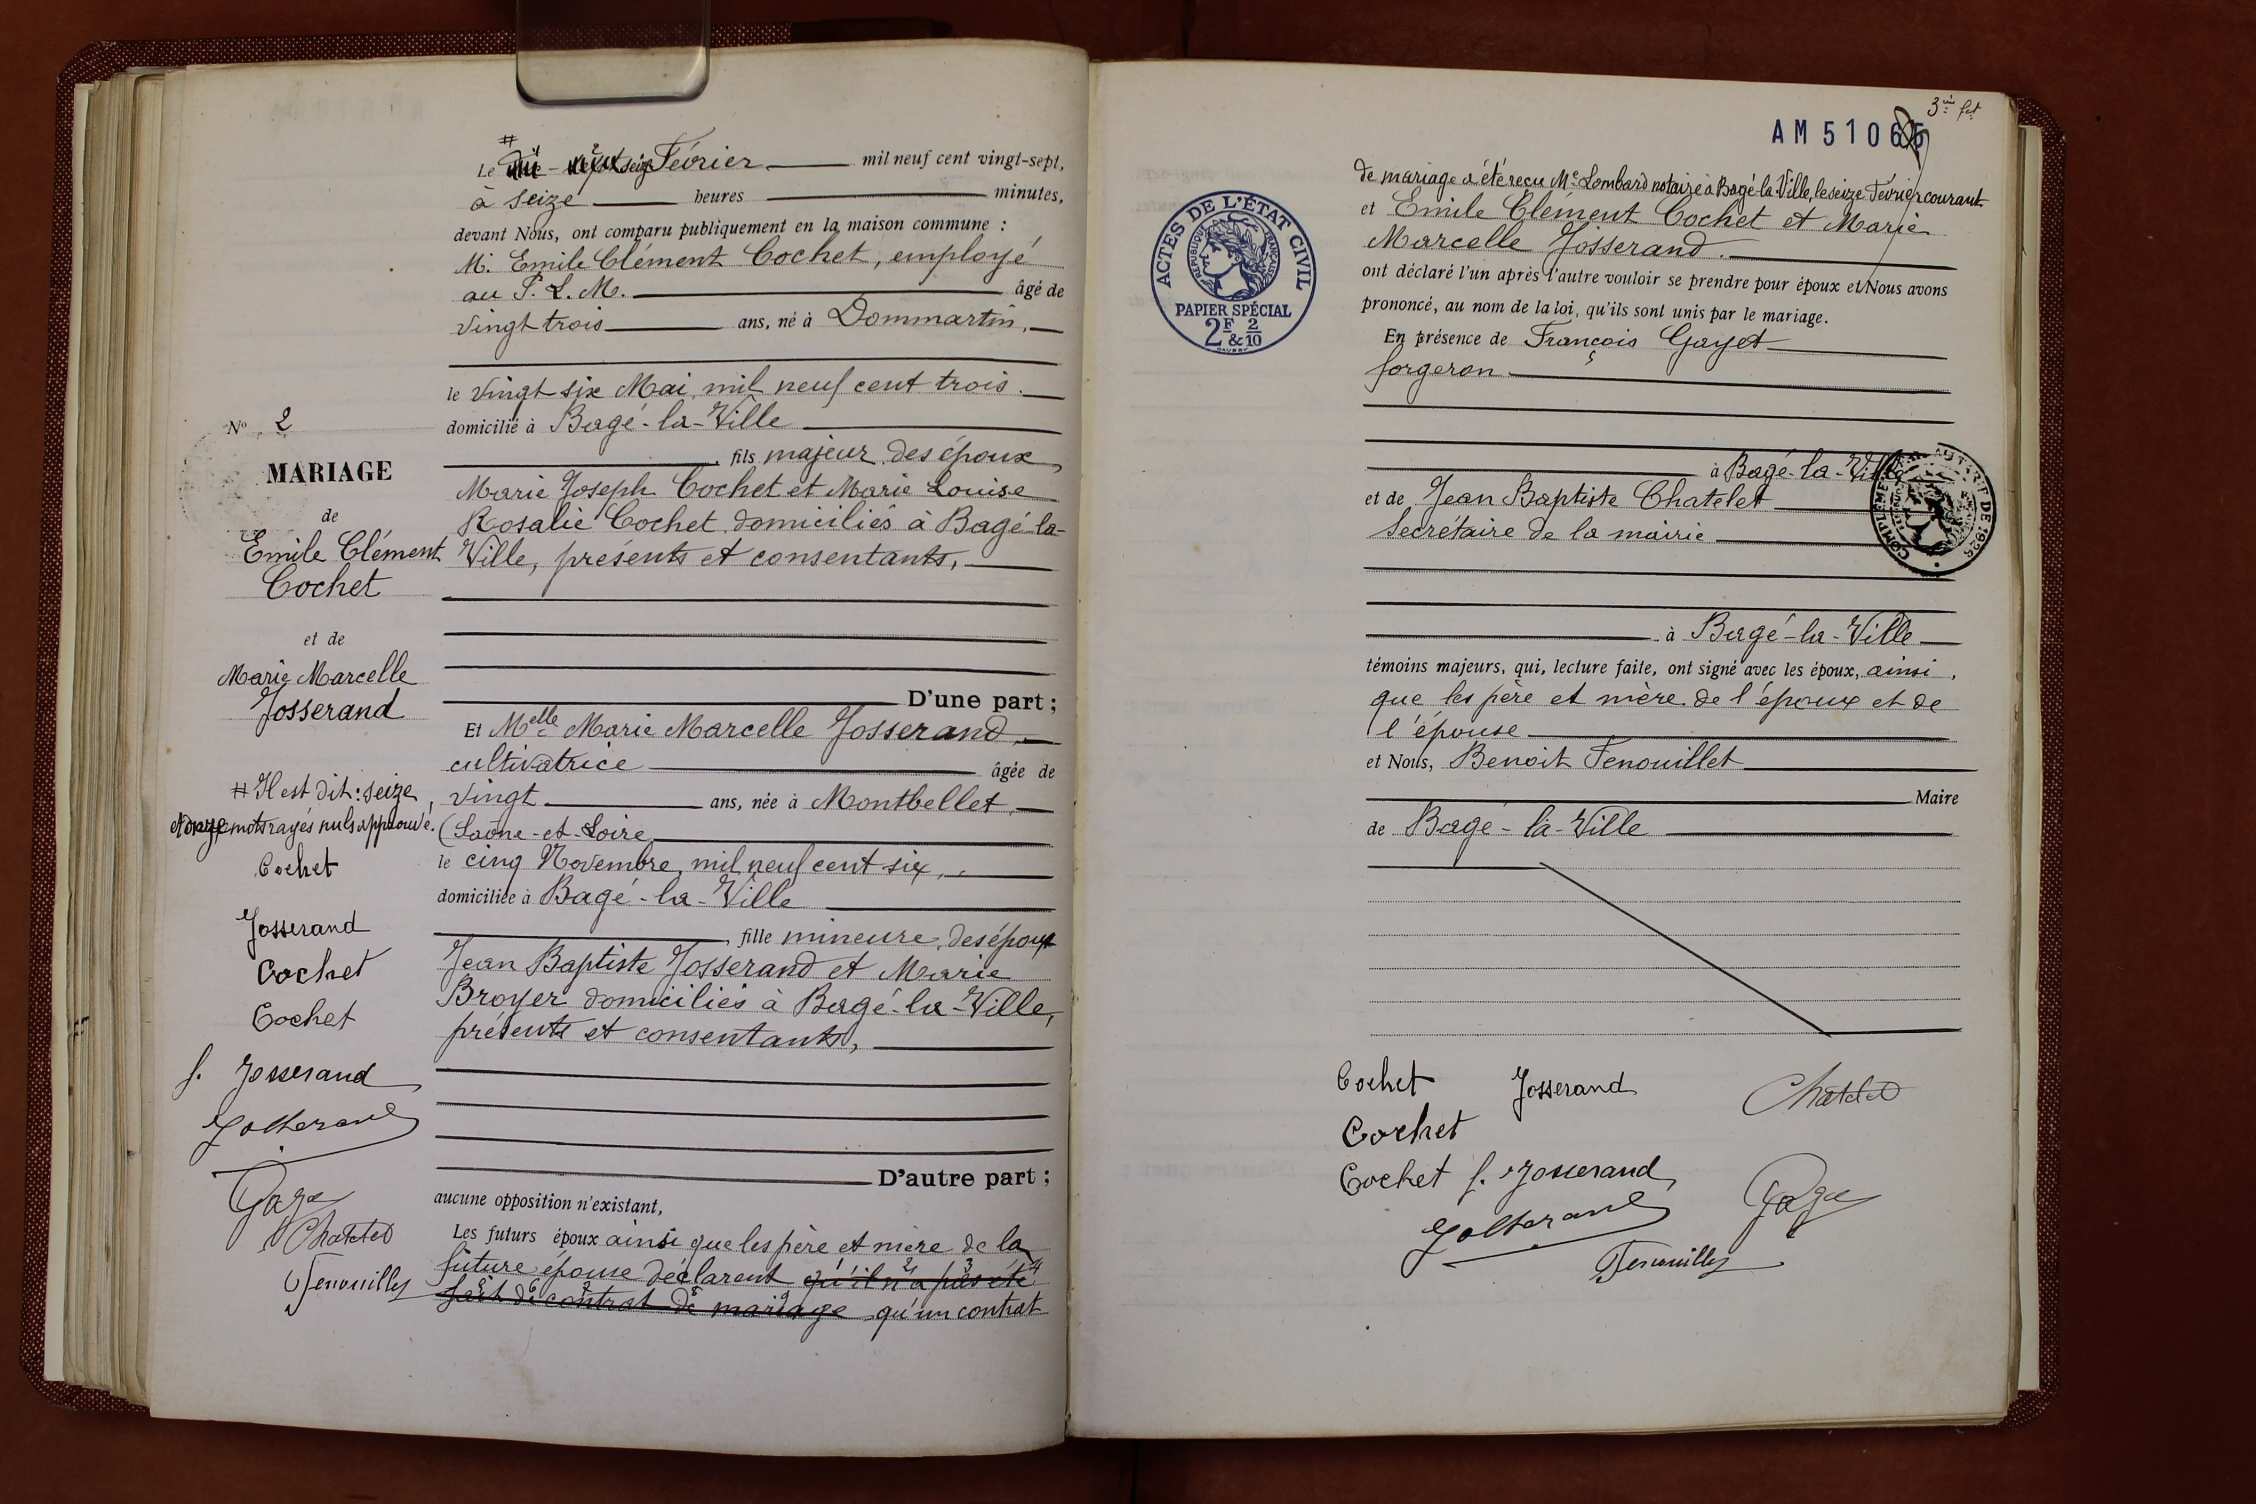 Le dix-sept seize Février mil neuf cent vingt-sept,
à seize heures minutes,
devant Nous, ont comparu publiquement en la maison commune :
M. Emile Clément Cochet, employé
au P. L. M. âgé de
vingt trois ans, né à Dommartin,
le vingt six Mai mil neuf cent trois.
domicilié à Bagé-la-Ville
, fils majeur des époux
Marie Joseph Cochet et Marie Louise
Rosalie Cochet domiciliés à Bagé-la-
Ville, présents et consentants,
D'une part ;
Et Melle Marie Marcelle Josserand,
cultivatrice âgée de
vingt ans, née à Montbellet,
(Saône-et-Loire
le cinq Novembre mil neuf cent six,
domiciliée à Bagé-la-Ville
, fille mineure des époux
Jean Baptiste Josserand et Marie
Broyer domiciliés à Bagé-la-Ville,
présents et consentants,
D'autre part ;
aucune opposition n'existant,
Les futurs époux ainsi que les père et mère de la
future épouse déclarent qu'il n'a pas été
fait de contrat de mariage qu'un contrat
N° 2
MARIAGE
de
Emile Clément
Cochet
et de
Marie Marcelle
Josserand
# Il est dit : seize,
et onze mots rayés nuls approuvé.
Cochet
Josserand
Cochet
Cochet
f. Josserand
Josserand
Chatelet
Fenouillet
3me fet
AM 51065
ACTES DE L'ÉTAT CIVIL
RÉPUBLIQUE FRANÇAISE
PAPIER SPÉCIAL
2F & 2/10
de mariage a été reçu Me Lombard notaire à Bagé-la-Ville, le seize Février courant.
et Emile Clément Cochet et Marie
Marcelle Josserand.
ont déclaré l'un après l'autre vouloir se prendre pour époux et Nous avons
prononcé, au nom de la loi, qu'ils sont unis par le mariage.
En présence de François Gayet
forgeron
à Bagé-la-Ville
et de Jean Baptiste Chatelet
Secrétaire de la mairie
à Bagé-la-Ville
témoins majeurs, qui, lecture faite, ont signé avec les époux, ainsi
que les père et mère de l'époux et de
l'épouse
et Nous, Benoit Fenouillet
Maire
de Bagé-la-Ville
Cochet Josserand Chatelet
Cochet
Cochet f. Josserand
Josserand
Fenouillet